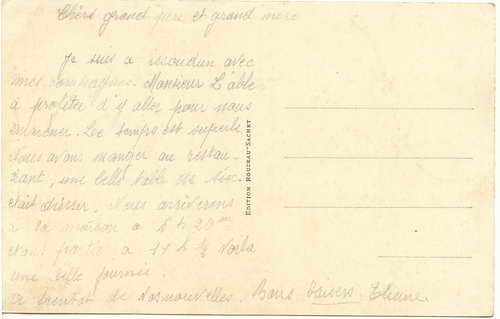 Chers grand père et grand mère
Je suis a issoudun avec
mes compagnes. Monsieur L'abbé
à profiter d'y aller pour nous
emmener. Le temps est superbe
Nous avons manger au restau-
rant, une belle table de
était dresser. Nous arriverons
a la maison a 8 h 20
partie a 11 h ½ Voila
une belle journée.
a bientot de vos nouvelles. Bons baisers Etienne
EDITION ROUZEAU-SACHET